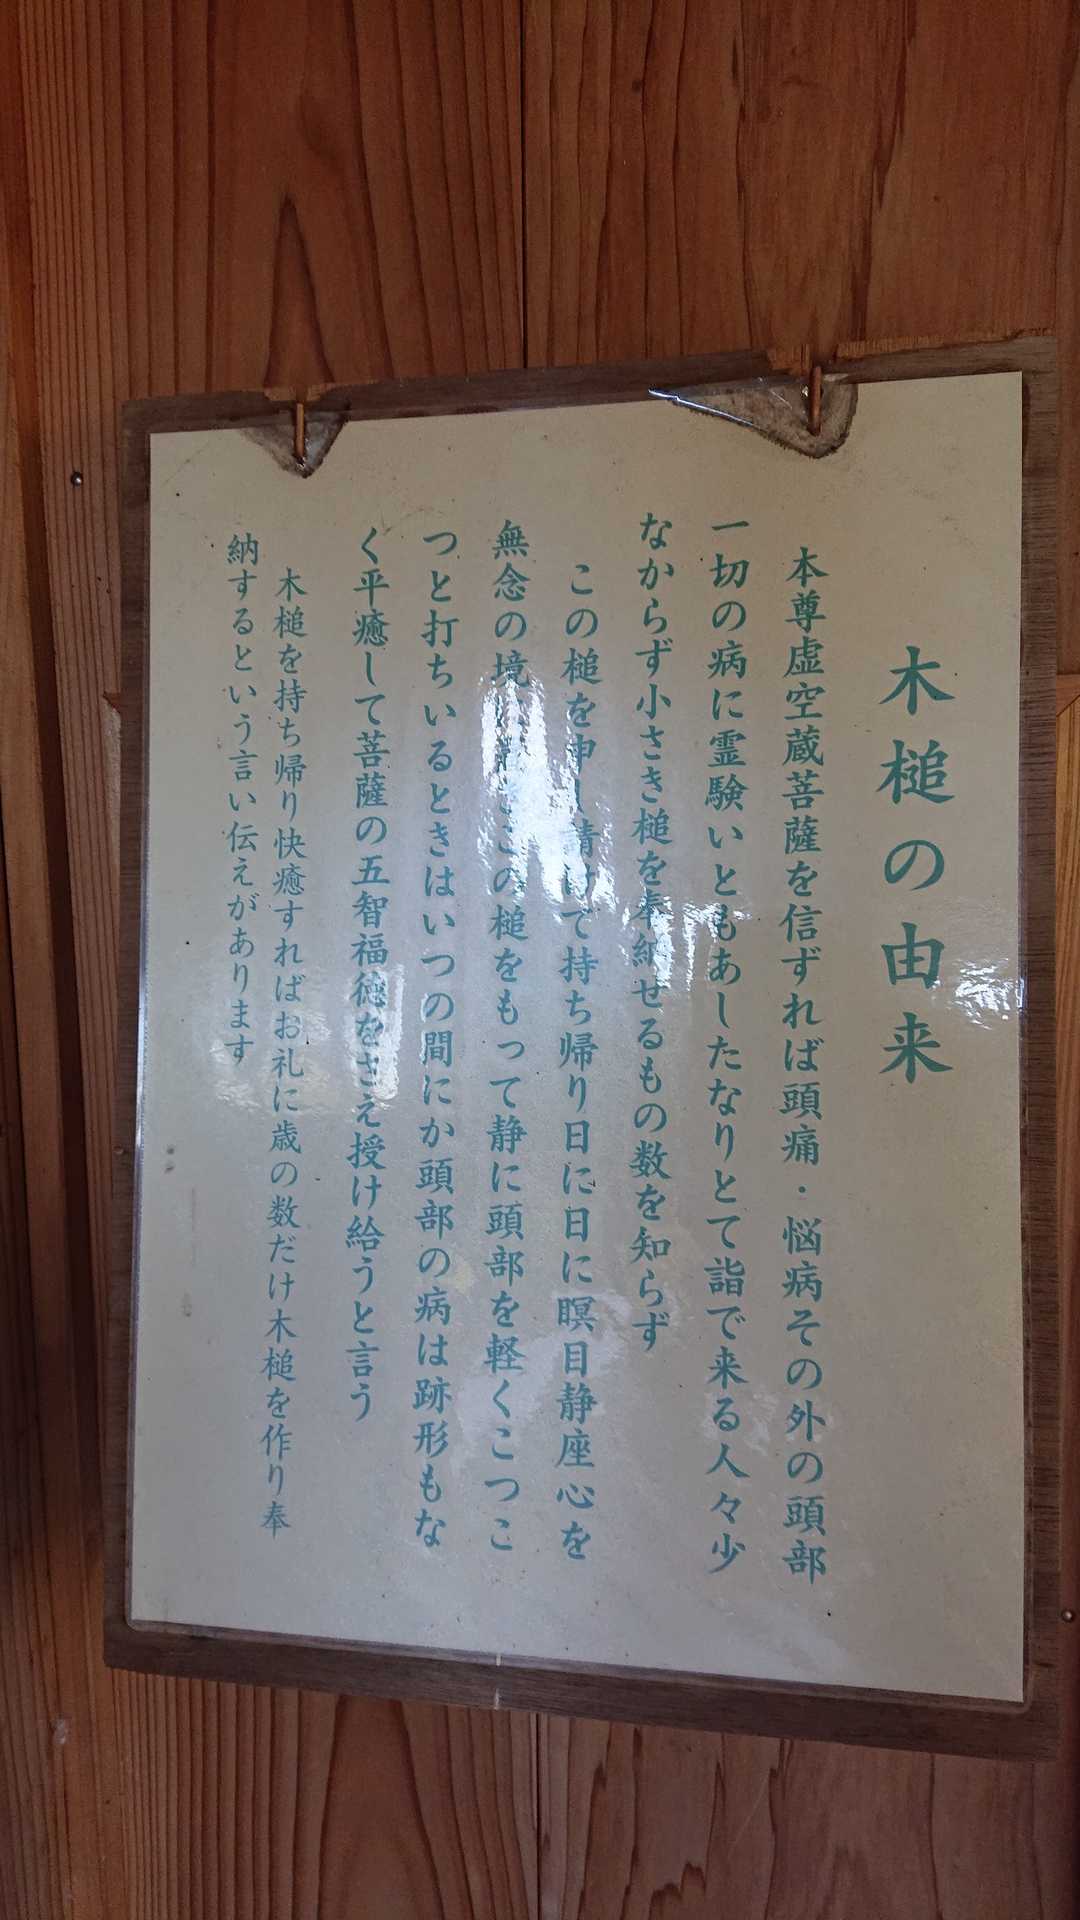 木槌の由来
本尊虚空蔵菩薩を信ずれば頭痛・悩病その外の頭部
一切の病に霊験いともあしたなりとて詣で来る人々少
なからず小さき槌を奉納せるもの数を知らず
この槌を申し請けて持ち帰り日に日に瞑目静座心を
無念の境この槌をもって静に頭部を軽くこつこ
つと打ちいるときはいつの間にか頭部の病は跡形もな
く平癒して菩薩の五智福徳をさえ授け給うと言う
木槌を持ち帰り快癒すればお礼に歳の数だけ木槌を作り奉
納するという言い伝えがあります